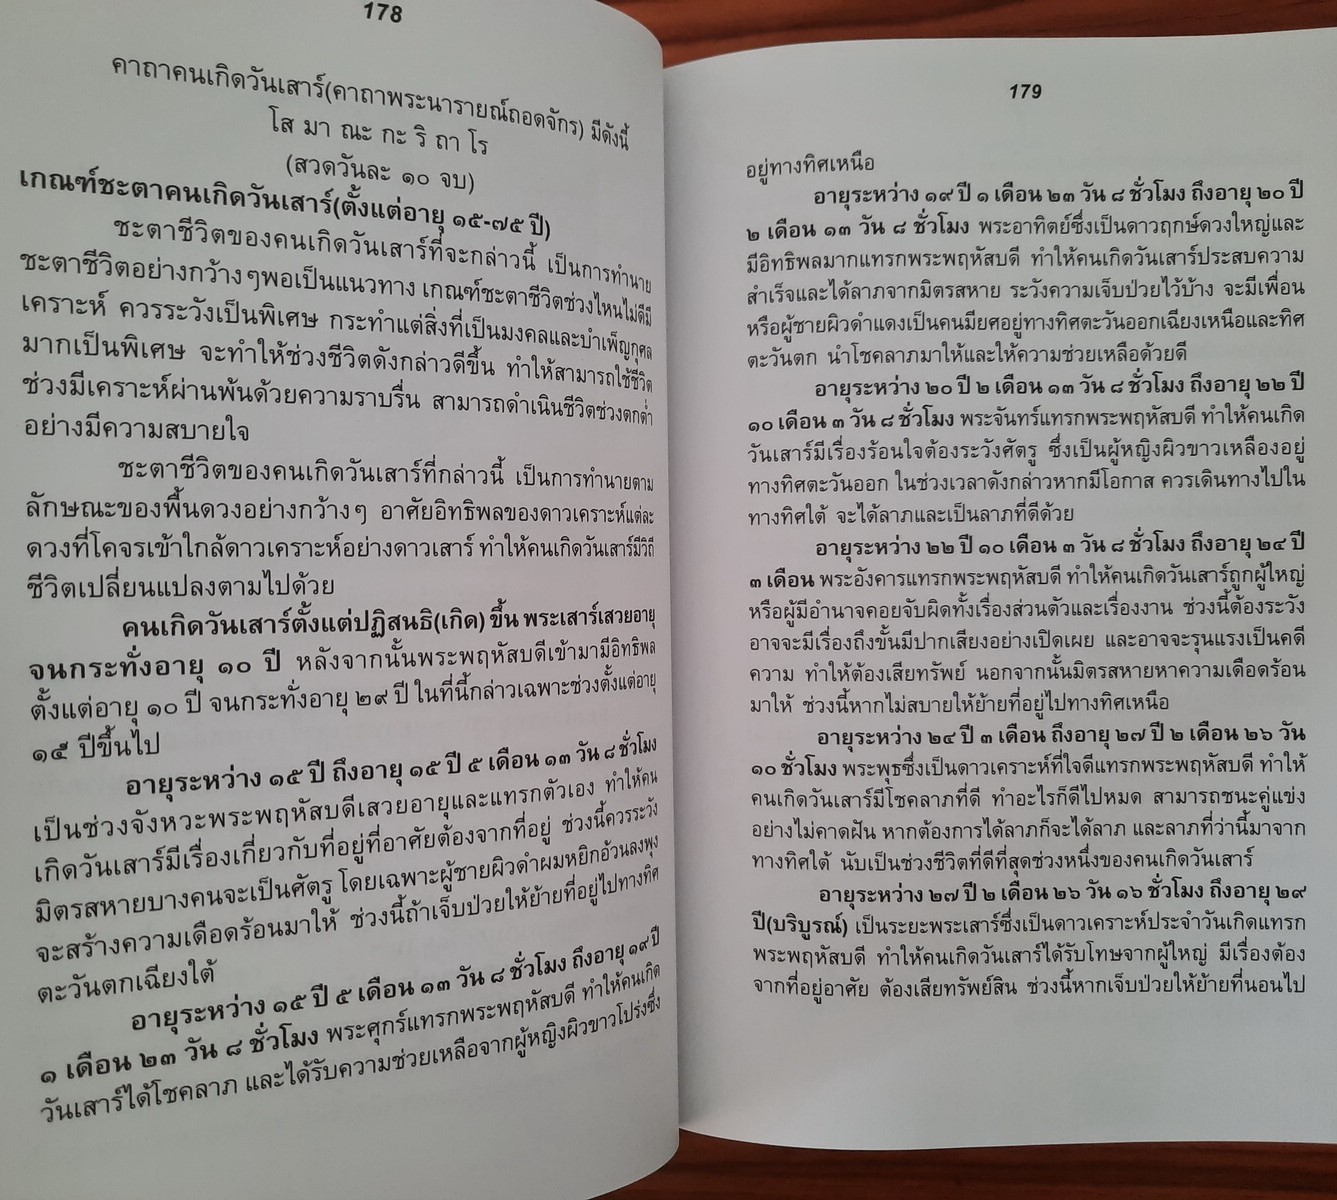 178
คาถาคนเกิดวันเสาร์(คาถาพระนารายณ์ถอดจักร) มีดังนี้
โส มา ณะ กะ ริ ถา โร
(สวดวันละ ๑๐ จบ)
เกณฑ์ชะตาคนเกิดวันเสาร์(ตั้งแต่อายุ ๑๕-๗๕ ปี)
ชะตาชีวิตของคนเกิดวันเสาร์ที่จะกล่าวนี้ เป็นการทำนาย
ชะตาชีวิตอย่างกว้างๆพอเป็นแนวทาง เกณฑ์ชะตาชีวิตช่วงไหนไม่ดีมี
เคราะห์ ควรระวังเป็นพิเศษ กระทำแต่สิ่งที่เป็นมงคลและบำเพ็ญกุศล
มากเป็นพิเศษ จะทำให้ช่วงชีวิตดังกล่าวดีขึ้น ทำให้สามารถใช้ชีวิต
ช่วงมีเคราะห์ผ่านพ้นด้วยความราบรื่น สามารถดำเนินชีวิตช่วงตกต่ำ
อย่างมีความสบายใจ
ชะตาชีวิตของคนเกิดวันเสาร์ที่กล่าวนี้ เป็นการทำนายตาม
ลักษณะของพื้นดวงอย่างกว้างๆ อาศัยอิทธิพลของดาวเคราะห์แต่ละ
ดวงที่โคจรเข้าใกล้ดาวเคราะห์อย่างดาวเสาร์ ทำให้คนเกิดวันเสาร์มีวิถี
ชีวิตเปลี่ยนแปลงตามไปด้วย
คนเกิดวันเสาร์ตั้งแต่ปฏิสนธิ(เกิด) ขึ้น พระเสาร์เสวยอายุ
จนกระทั่งอายุ ๑๐ ปี หลังจากนั้นพระพฤหัสบดีเข้ามามีอิทธิพล
ตั้งแต่อายุ ๑๐ ปี จนกระทั่งอายุ ๒๙ ปี ในที่นี้กล่าวเฉพาะช่วงตั้งแต่อายุ
๑๕ ปีขึ้นไป
อายุระหว่าง ๑๕ ปี ถึงอายุ ๑๕ ปี ๕ เดือน ๑๓ วัน ๘ ชั่วโมง
เป็นช่วงจังหวะพระพฤหัสบดีเสวยอายุและแทรกตัวเอง ทำให้คน
เกิดวันเสาร์มีเรื่องเกี่ยวกับที่อยู่ที่อาศัยต้องจากที่อยู่ ช่วงนี้ควรระวัง
มิตรสหายบางคนจะเป็นศัตรู โดยเฉพาะผู้ชายผิวดำผมหยิกอ้วนลงพุง
จะสร้างความเดือดร้อนมาให้ ช่วงนี้ถ้าเจ็บป่วยให้ย้ายที่อยู่ไปทางทิศ
ตะวันตกเฉียงใต้
อายุระหว่าง ๑๕ ปี ๕ เดือน ๑๓ วัน ๘ ชั่วโมง ถึงอายุ ๑๙ ปี
๑ เดือน ๒๓ วัน ๘ ชั่วโมง พระศุกร์แทรกพระพฤหัสบดี ทำให้คนเกิด
วันเสาร์ได้โชคลาภ และได้รับความช่วยเหลือจากผู้หญิงผิวขาวโปร่งซึ่ง
179
อยู่ทางทิศเหนือ
อายุระหว่าง ๑๙ ปี ๑ เดือน ๒๓ วัน ๘ ชั่วโมง ถึงอายุ ๒๐ ปี
๒ เดือน ๑๓ วัน ๘ ชั่วโมง พระอาทิตย์ซึ่งเป็นดาวฤกษ์ดวงใหญ่และ
มีอิทธิพลมากแทรกพระพฤหัสบดี ทำให้คนเกิดวันเสาร์ประสบความ
สำเร็จและได้ลาภจากมิตรสหาย ระวังความเจ็บป่วยไว้บ้าง จะมีเพื่อน
หรือผู้ชายผิวดำแดงเป็นคนมียศอยู่ทางทิศตะวันออกเฉียงเหนือและทิศ
ตะวันตก นำโชคลาภมาให้และให้ความช่วยเหลือด้วยดี
อายุระหว่าง ๒๐ ปี ๒ เดือน ๑๓ วัน ๘ ชั่วโมง ถึงอายุ ๒๒ ปี
๑๐ เดือน ๓ วัน ๘ ชั่วโมง พระจันทร์แทรกพระพฤหัสบดี ทำให้คนเกิด
วันเสาร์มีเรื่องร้อนใจต้องระวังศัตรู ซึ่งเป็นผู้หญิงผิวขาวเหลืองอยู่
ทางทิศตะวันออก ในช่วงเวลาดังกล่าวหากมีโอกาส ควรเดินทางไปใน
ทางทิศใต้ จะได้ลาภและเป็นลาภที่ดีด้วย
อายุระหว่าง ๒๒ ปี ๑๐ เดือน ๓ วัน ๘ ชั่วโมง ถึงอายุ ๒๔ ปี
๓ เดือน พระอังคารแทรกพระพฤหัสบดี ทำให้คนเกิดวันเสาร์ถูกผู้ใหญ่
หรือผู้มีอำนาจคอยจับผิดทั้งเรื่องส่วนตัวและเรื่องงาน ช่วงนี้ต้องระวัง
อาจจะมีเรื่องถึงขั้นมีปากเสียงอย่างเปิดเผย และอาจจะรุนแรงเป็นคดี
ความ ทำให้ต้องเสียทรัพย์ นอกจากนั้นมิตรสหายหาความเดือดร้อน
มาให้ ช่วงนี้หากไม่สบายให้ย้ายที่อยู่ไปทางทิศเหนือ
อายุระหว่าง ๒๔ ปี ๓ เดือน ถึงอายุ ๒๗ ปี ๒ เดือน ๒๖ วัน
๑๐ ชั่วโมง พระพุธซึ่งเป็นดาวเคราะห์ที่ใจดีแทรกพระพฤหัสบดี ทำให้
คนเกิดวันเสาร์มีโชคลาภที่ดี ทำอะไรก็ดีไปหมด สามารถชนะคู่แข่ง
อย่างไม่คาดฝัน หากต้องการได้ลาภก็จะได้ลาภ และลาภที่ว่านี้มาจาก
ทางทิศใต้ นับเป็นช่วงชีวิตที่ดีที่สุดช่วงหนึ่งของคนเกิดวันเสาร์
อายุระหว่าง ๒๗ ปี ๒ เดือน ๒๖ วัน ๑๖ ชั่วโมง ถึงอายุ ๒๙
ปี(บริบูรณ์) เป็นระยะพระเสาร์ซึ่งเป็นดาวเคราะห์ประจำวันเกิดแทรก
พระพฤหัสบดี ทำให้คนเกิดวันเสาร์ได้รับโทษจากผู้ใหญ่ มีเรื่องต้อง
จากที่อยู่อาศัย ต้องเสียทรัพย์สิน ช่วงนี้หากเจ็บป่วยให้ย้ายที่นอนไป